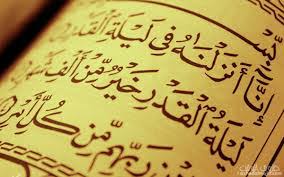 إِنَّا أَنزَلْنَٰهُ فِي لَيْلَةِ الْقَدْرِ
لَيْلَةُ الْقَدْرِ خَيْرٌ مِّنْ أَلْفِ شَهْرٍ
رَبِّهِم مِّن كُلِّ أَمْرٍ